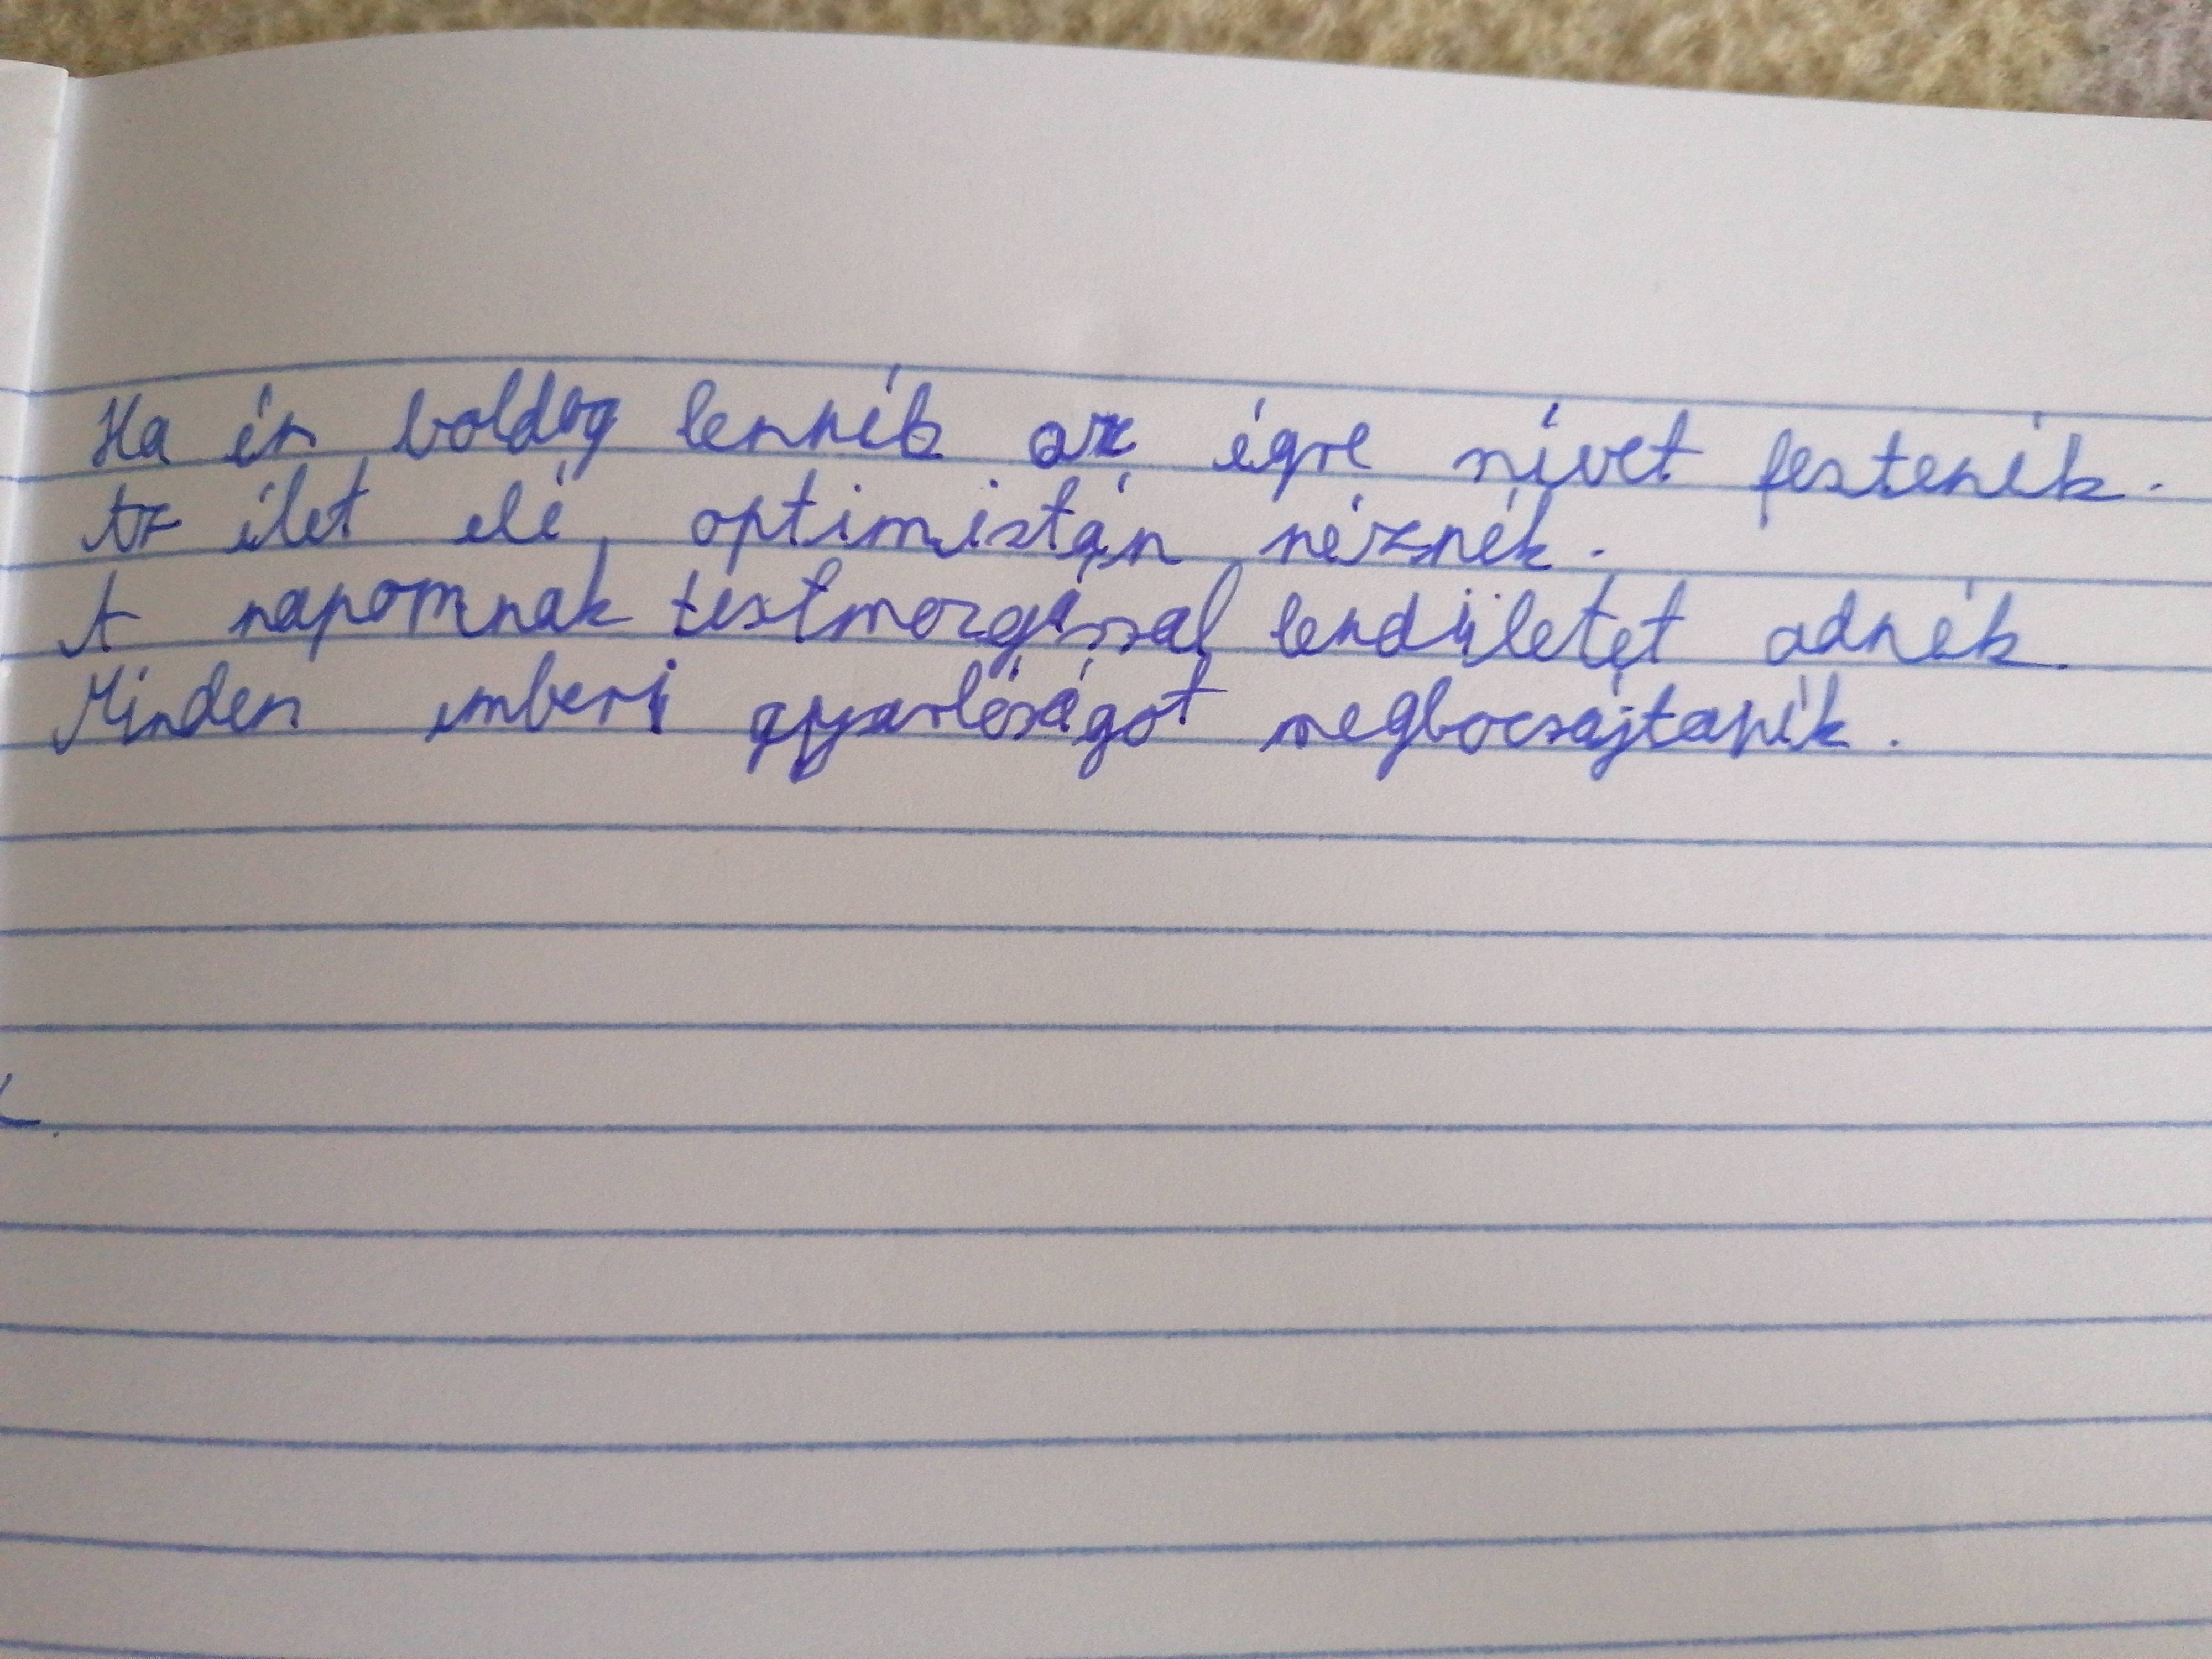 Ha én boldog lennék az égre szívet festenék.
Az élet elé optimistán néznék.
A napomnak testmozgással lendületet adnék.
Minden emberi gyarlóságot megbocsájtanék.